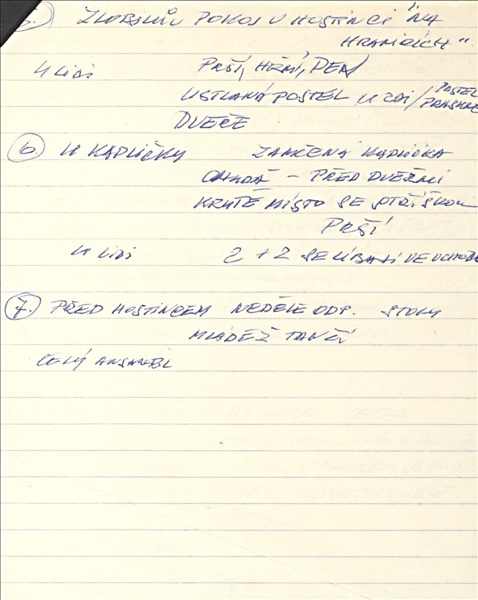 5. ZLOBILŮV POKOJ V HOSTINCI "NA
HRANICÍCH"
4 LIDI PRŠÍ, HŘMÍ, DEN
USTLANÁ POSTEL U ZDI/POSTEL
PRASKNE
DVEŘE
6. U KAPLIČKY ZAMČENÁ KAPLIČKA
PŘED DVEŘMI
KRYTÉ MÍSTO SE STŘÍŠKOU
PRŠÍ
4 LIDI 2 + 2 SE LÍBAJÍ VE
7. PŘED HOSTINCEM NEDĚLE ODP. STOLY
MLÁDEŽ TANČÍ
CELÝ ANSÁMBL